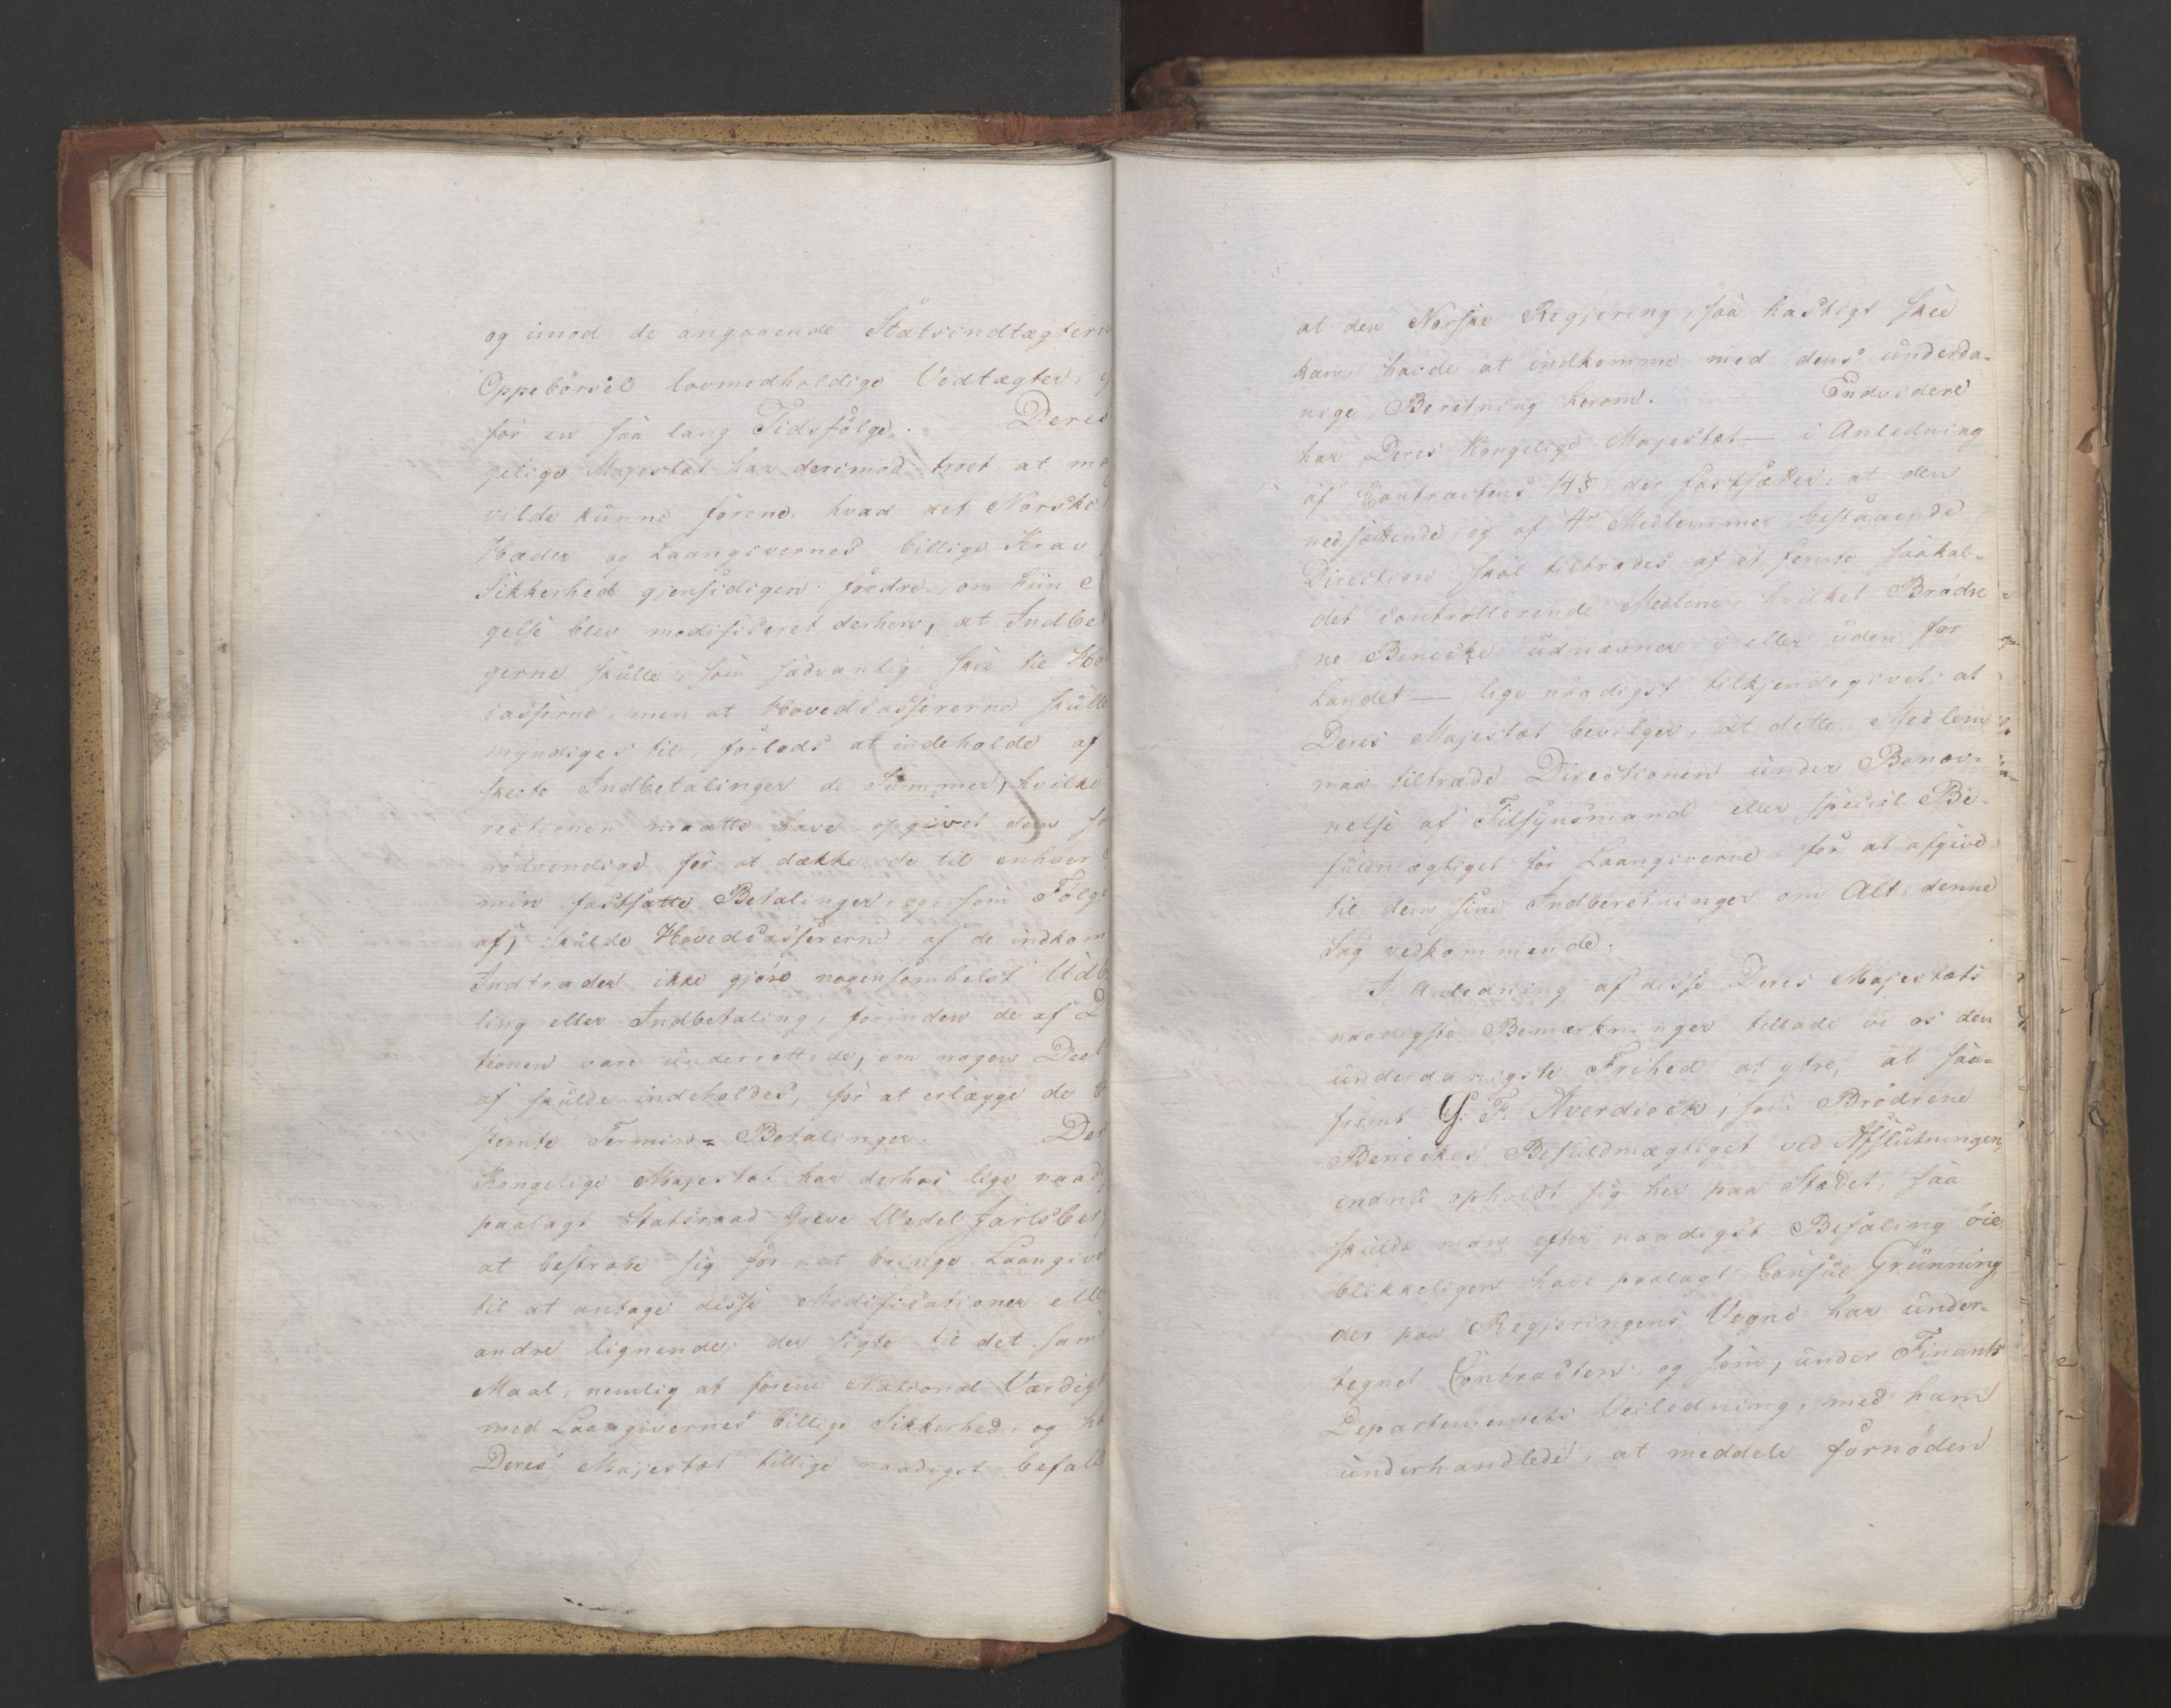 og imod de angaaende Statsindtægtern
Oppebörsel lovmedholdige Vedtægter,
for en saa lang Tidsfölge. Deres
gelige Majestæt har derimod troet at m
vilde kunne forene, hvad det Norske
Hæder og Laangivernes billige Krav
Sikkerhed gjensidigen fordre, om hiin
gelse blev modificeret derhen, at Indbe
gerne skulle, som sædvanlig, skee til Ho
casserne, men at Hovedcassererne skulle
myndiges til, forlods at indeholde af
skeete Indbetalinger de Summer, hvilke
rectionen maatte have opgivet dem so
nödvendige for at dække de til enhver
min fastsatte Betalinger, og, som Fölge
af, skulde Hovedcassererne, af de indkom
Indtrader ikke gjöre nogensomhelst Udb
ling eller Indbetaling, forinden de af D
tionen vare underrettede, om nogen Deel
af skulde indeholdes, for at erlægge de
stemte Termins= Betalinger. Der
Kongelige Majestæt har derhos lige naad
paalagt Statsraad Greve Wedel Jarlsber
at bestræbe sig for, at bringe Laangive
til at antage disse Modificationer elle
andre lignende, der sigte til det sam
Maal, nemlig at forene National Værdig
med Laangivernes billige Sikkerhed, og ha
Deres Majestæt tillige naadigst befalet
at den Norske Regjering, saa hastigt skee
kan, havde at indkomme med dens underda=
nige Beretning herom. Endvidere
har Deres Kongelige Majestæt — i Anledning
af Contractens 14 § der fastsætter, at den
nedsættende og af 4re Medlemmer bestaaende
Direction skal tiltrædes af et femte saakal=
det controllerende Medlem, hvilket Brödre
ne Benecke udnævner i eller uden for
Landet — lige naadigst tilkjendegivet, at
Deres Majestæt bevilger, at dette Medlem
maa tiltræde Directionen under Benæv=
nelse af Tilsynsmand eller speciel Be=
fuldmægtiget for Laangiverne, for at afgive
til dem sine Indberetninger om Alt denne
Sag vedkommende.
I Anledning af disse Deres Majestæts
naadigste Bemærkninger tillade vi os den
underdanigste Frihed at ytre, at saa=
fremt G. F. Averdieck, som Brödrene
Beneckes Befuldmægtiget ved Afslutningen,
endnu opholdt sig her paa Stædet, saa
skulde man efter naadigst Befaling öie
blikkeligen have paalagt Consul Grünning
der paa Regjeringens Vegne har under=
tegnet Contracten, og som, under Finants
Departementets Veiledning, med ham
underhandlede, at meddele fornöden